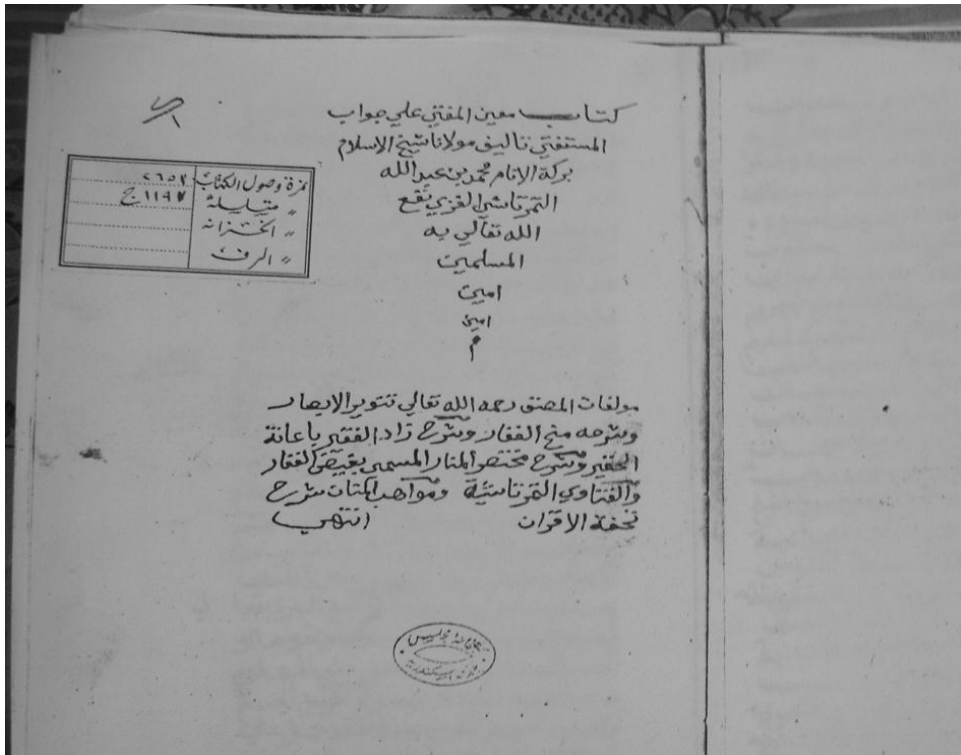 كتاب معين المفتي علي جواب
المستفتي تاليف مولانا شيخ الاسلام
بركة الانام محمد بن عبد الله
التمرتاشي الغزي نفع
الله تعالي به
المسلمين
امين
امين
م
نمرة وصول الكتاب ٢٦٥٢
〃 متسلسلة ١١٩٧ ج
〃 الخزانه
〃 الرف
مولفات المصنف رحمه الله تعالي تنوير الابصار
وشرحه منح الغفار وشرح زاد الفقير باعانة
الحقير وشرح مختصر المنار المسمي بفيض الغفار
والفتاوي التمرتاشية ومواهب المنان شرح
تحفة الاقران انتهي
مجلس
اسكندرية